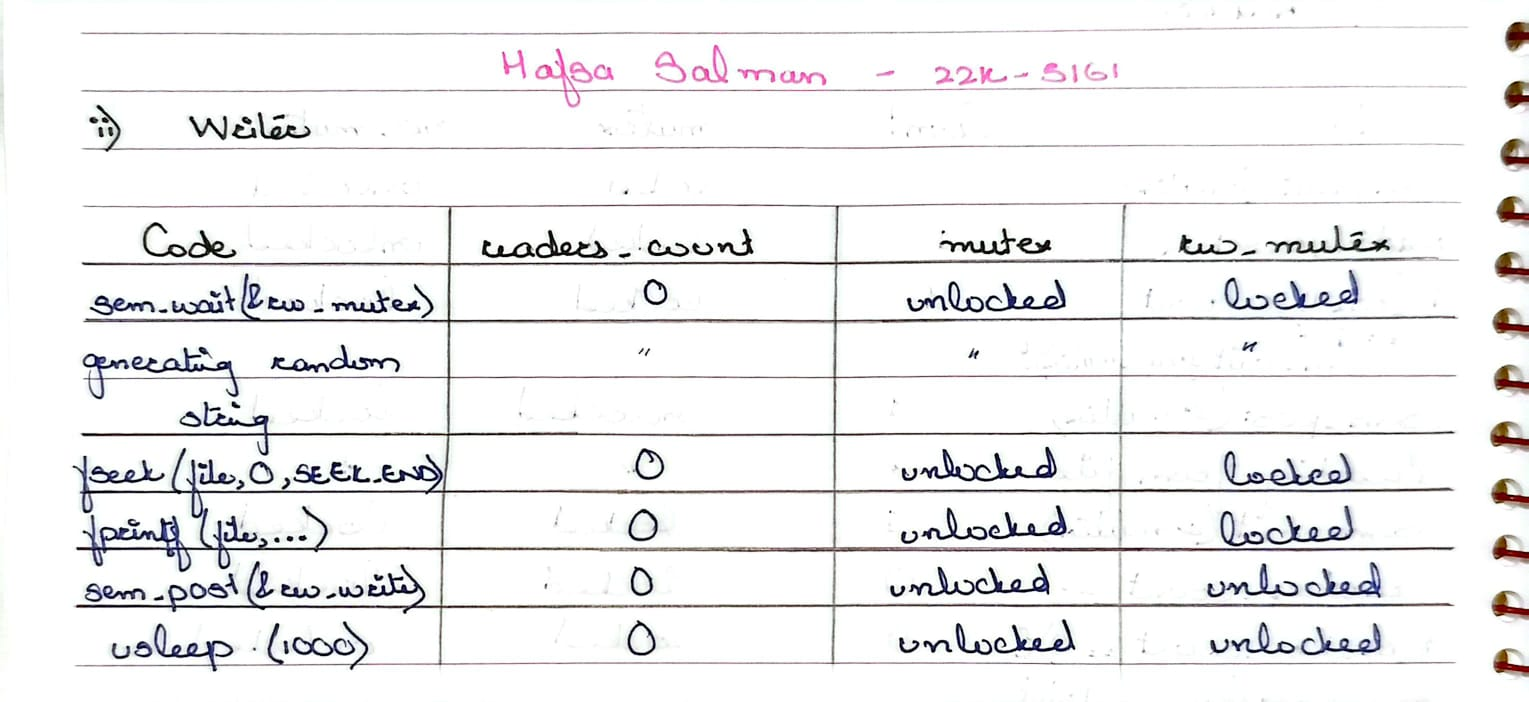 Hafsa Salman - 22K-5161
ii) Writer
Code readers_count mutex rw_mutex
sem_wait(&rw_mutex) 0 unlocked locked
generating random " " "
string
fseek(file, 0, SEEK_END) 0 unlocked locked
fprintf(file, ...) 0 unlocked locked
sem_post(&rw_write) 0 unlocked unlocked
usleep (1000) 0 unlocked unlocked